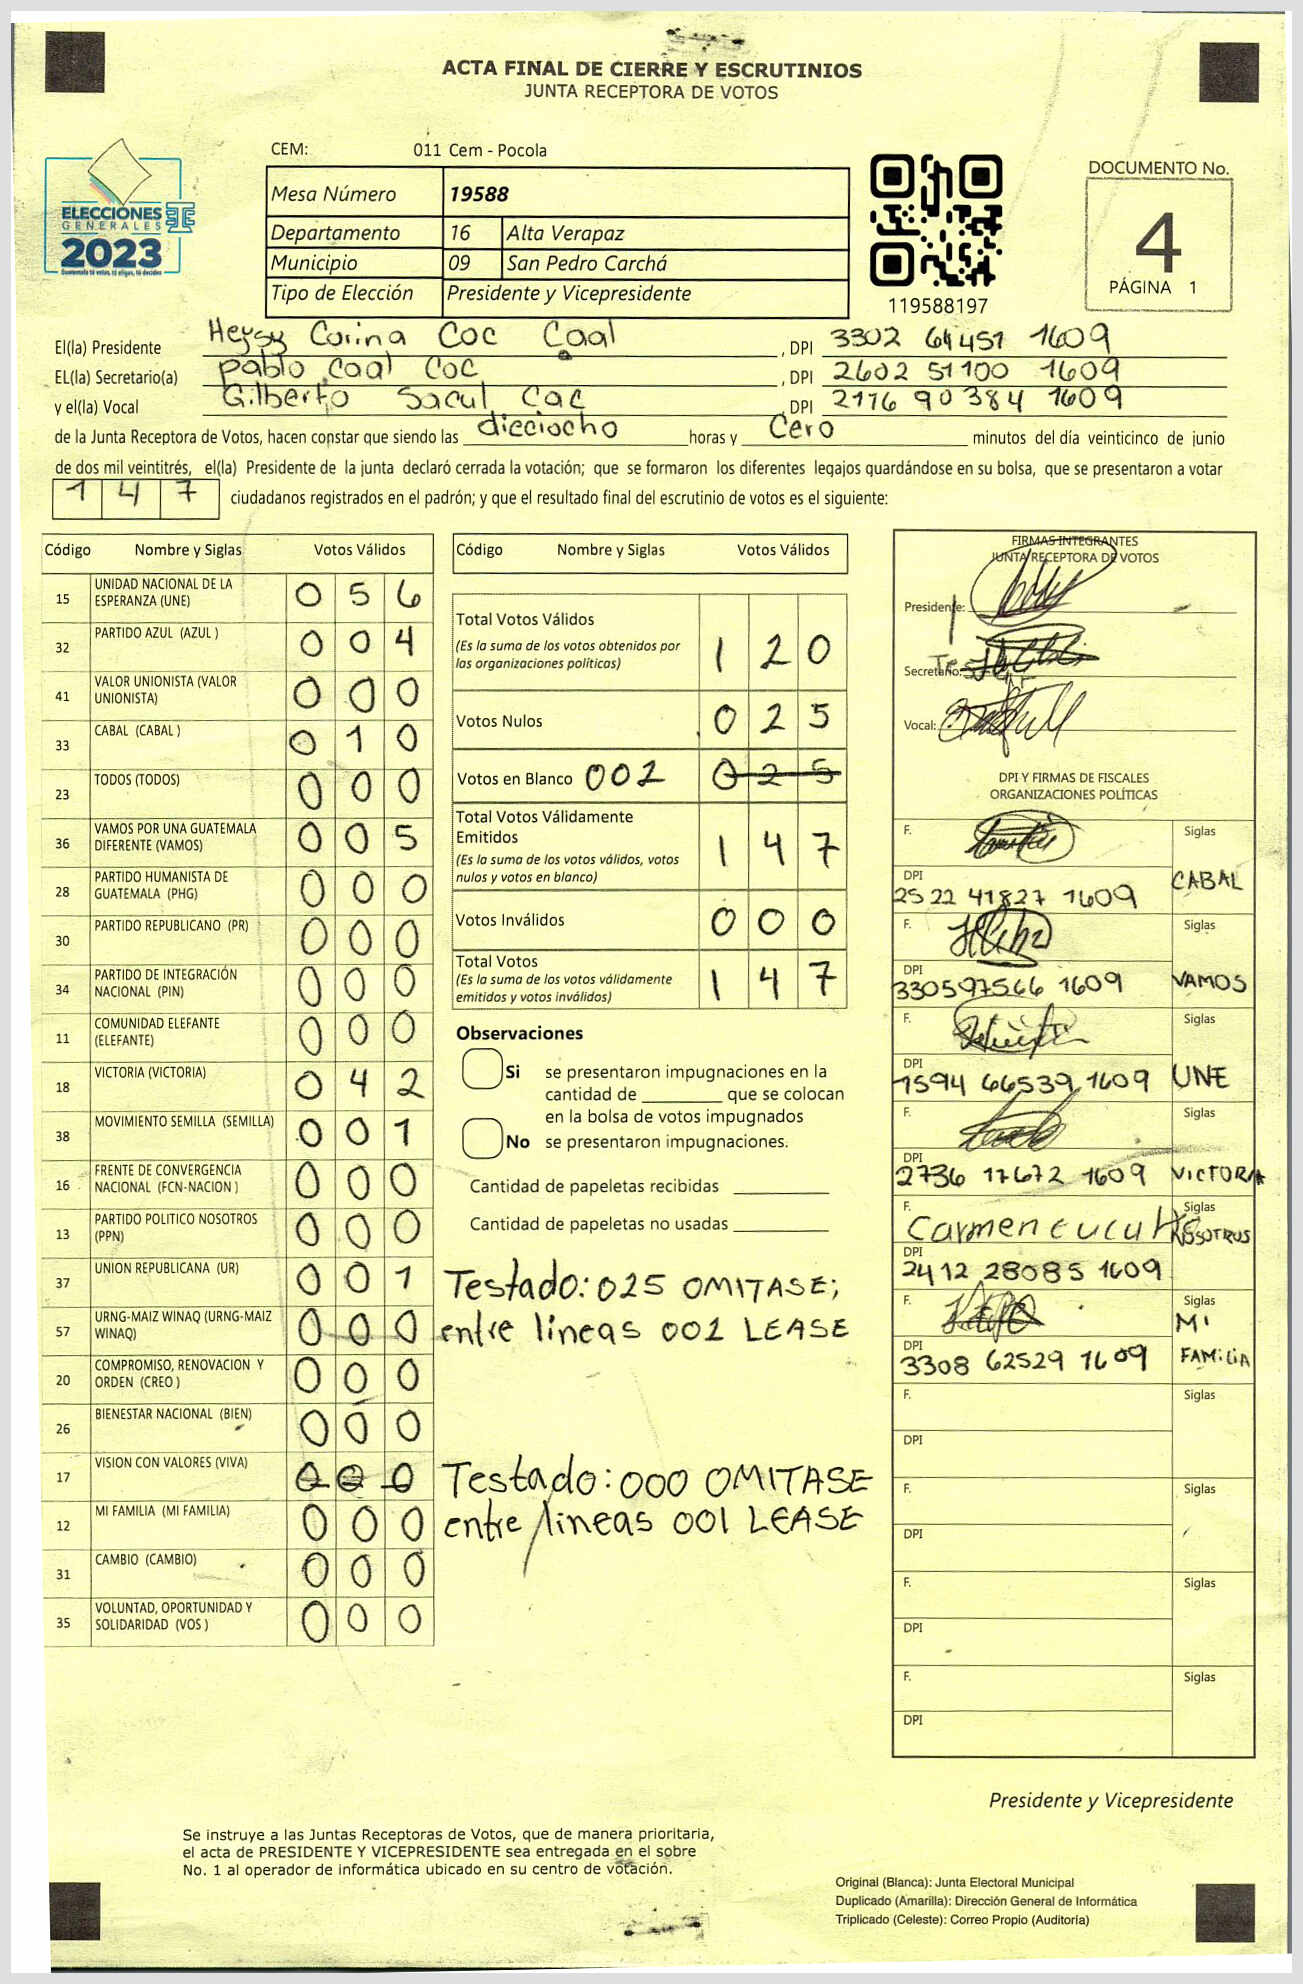 ACTA FINAL DE CIERRE Y ESCRUTINIOS
JUNTA RECEPTORA DE VOTOS
CEM: 011 Cem - Pocola
ELECCIONES
GENERALES
2023
Guatemala tú votas, tú eliges, tú decides
Mesa Número 19588
Departamento 16 Alta Verapaz
Municipio 09 San Pedro Carchá
Tipo de Elección Presidente y Vicepresidente
119588197
DOCUMENTO No.
4
PÁGINA 1
El(la) Presidente Heysy Corina Coc Caal , DPI 3302 64451 1609
EL(la) Secretario(a) Pablo Caal Coc , DPI 2602 51100 1609
y el(la) Vocal Gilberto Sacul Cac , DPI 2116 90384 1609
de la Junta Receptora de Votos, hacen constar que siendo las dieciocho horas y Cero minutos del día veinticinco de junio
de dos mil veintitrés, el(la) Presidente de la junta declaró cerrada la votación; que se formaron los diferentes legajos guardándose en su bolsa, que se presentaron a votar
147 ciudadanos registrados en el padrón; y que el resultado final del escrutinio de votos es el siguiente:
Código Nombre y Siglas Votos Válidos
15 UNIDAD NACIONAL DE LA ESPERANZA (UNE) 0 5 6
32 PARTIDO AZUL (AZUL ) 0 0 4
41 VALOR UNIONISTA (VALOR UNIONISTA) 0 0 0
33 CABAL (CABAL ) 0 1 0
23 TODOS (TODOS) 0 0 0
36 VAMOS POR UNA GUATEMALA DIFERENTE (VAMOS) 0 0 5
28 PARTIDO HUMANISTA DE GUATEMALA (PHG) 0 0 0
30 PARTIDO REPUBLICANO (PR) 0 0 0
34 PARTIDO DE INTEGRACIÓN NACIONAL (PIN) 0 0 0
11 COMUNIDAD ELEFANTE (ELEFANTE) 0 0 0
18 VICTORIA (VICTORIA) 0 4 2
38 MOVIMIENTO SEMILLA (SEMILLA) 0 0 1
16 FRENTE DE CONVERGENCIA NACIONAL (FCN-NACION ) 0 0 0
13 PARTIDO POLITICO NOSOTROS (PPN) 0 0 0
37 UNION REPUBLICANA (UR) 0 0 1
57 URNG-MAIZ WINAQ (URNG-MAIZ WINAQ) 0 0 0
20 COMPROMISO, RENOVACION Y ORDEN (CREO ) 0 0 0
26 BIENESTAR NACIONAL (BIEN) 0 0 0
17 VISION CON VALORES (VIVA) 0 0 0
12 MI FAMILIA (MI FAMILIA) 0 0 0
31 CAMBIO (CAMBIO) 0 0 0
35 VOLUNTAD, OPORTUNIDAD Y SOLIDARIDAD (VOS ) 0 0 0
Código Nombre y Siglas Votos Válidos
Total Votos Válidos 1 2 0
(Es la suma de los votos obtenidos por
las organizaciones políticas)
Votos Nulos 0 2 5
Votos en Blanco 002 0 2 5
Total Votos Válidamente
Emitidos 1 4 7
(Es la suma de los votos válidos, votos
nulos y votos en blanco)
Votos Inválidos 0 0 0
Total Votos 1 4 7
(Es la suma de los votos válidamente
emitidos y votos inválidos)
Observaciones
Si se presentaron impugnaciones en la
cantidad de ________ que se colocan
en la bolsa de votos impugnados
No se presentaron impugnaciones.
Cantidad de papeletas recibidas
Cantidad de papeletas no usadas
Testado: 025 OMITASE;
entre lineas 002 LEASE
Testado: 000 OMITASE
entre lineas 001 LEASE
FIRMAS INTEGRANTES
JUNTA RECEPTORA DE VOTOS
Presidente:
Secretario:
Vocal:
DPI Y FIRMAS DE FISCALES
ORGANIZACIONES POLÍTICAS
F. Siglas
DPI 2522 41827 1609 CABAL
F. Siglas
DPI 330597566 1609 VAMOS
F. Siglas
DPI 1594 66539 1609 UNE
F. Siglas
DPI 2736 17672 1609 VICTORIA
F. Carmen cucul Siglas
NOSOTROS
DPI 2412 28085 1609
F. Siglas
MI
DPI 3308 62529 1609 FAMILIA
F. Siglas
DPI
F. Siglas
DPI
F. Siglas
DPI
F. Siglas
DPI
Presidente y Vicepresidente
Se instruye a las Juntas Receptoras de Votos, que de manera prioritaria,
el acta de PRESIDENTE Y VICEPRESIDENTE sea entregada en el sobre
No. 1 al operador de informática ubicado en su centro de votación.
Original (Blanca): Junta Electoral Municipal
Duplicado (Amarilla): Dirección General de Informática
Triplicado (Celeste): Correo Propio (Auditoría)